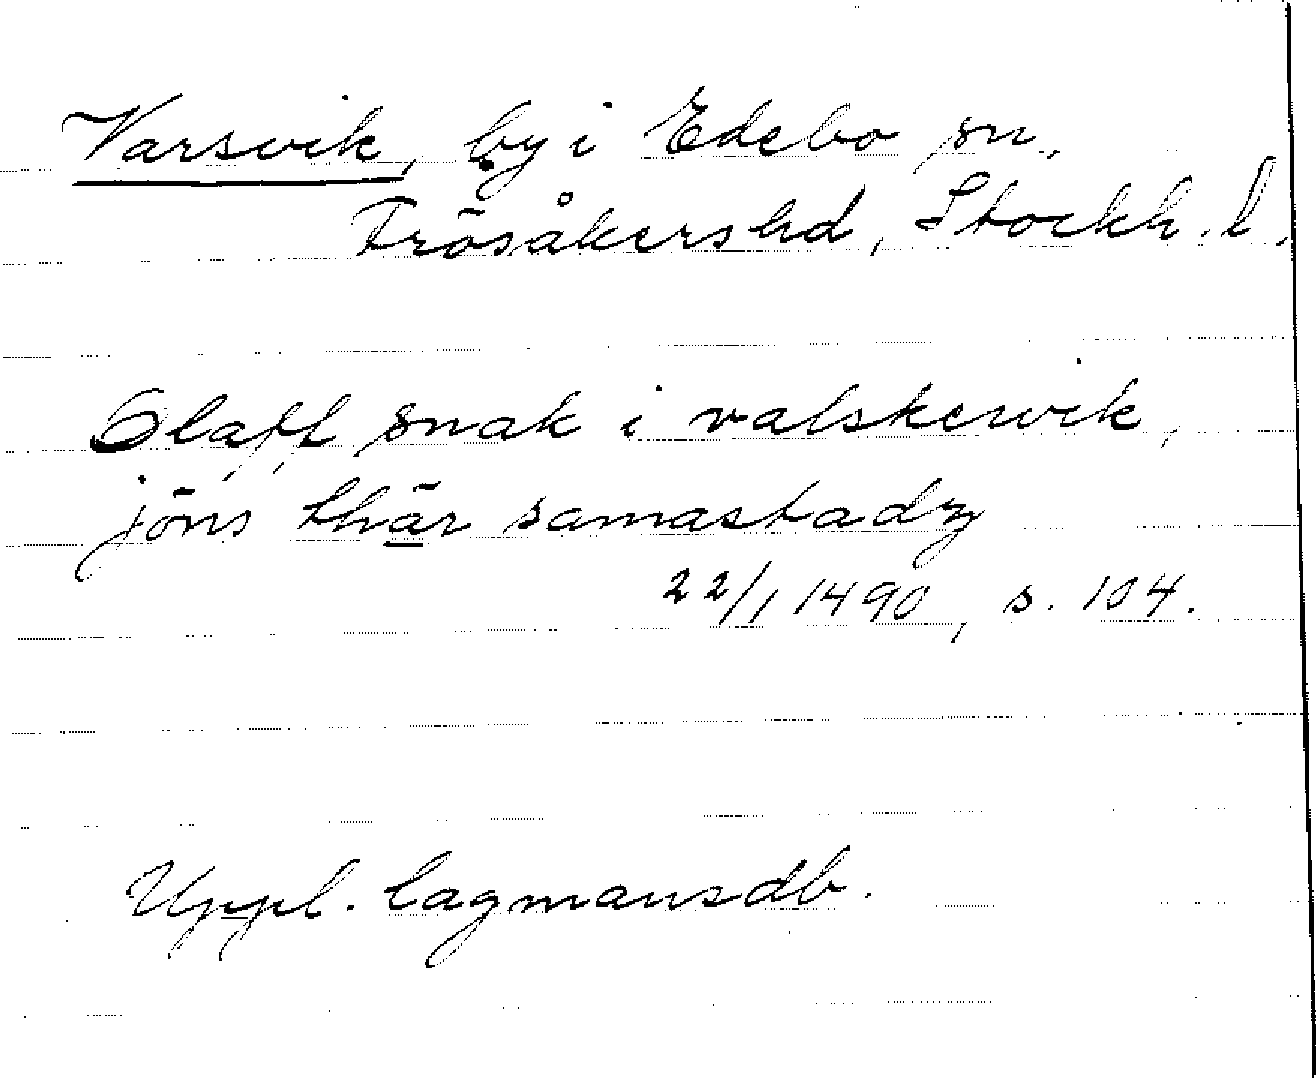 Varsvik, by i Edebo sn,
Frösåkers hd, Stockh. l.
Olaff snak i valskervik,
jöns thär samastadz
22/1 1490, s. 104.
Uppl. lagmansdb.